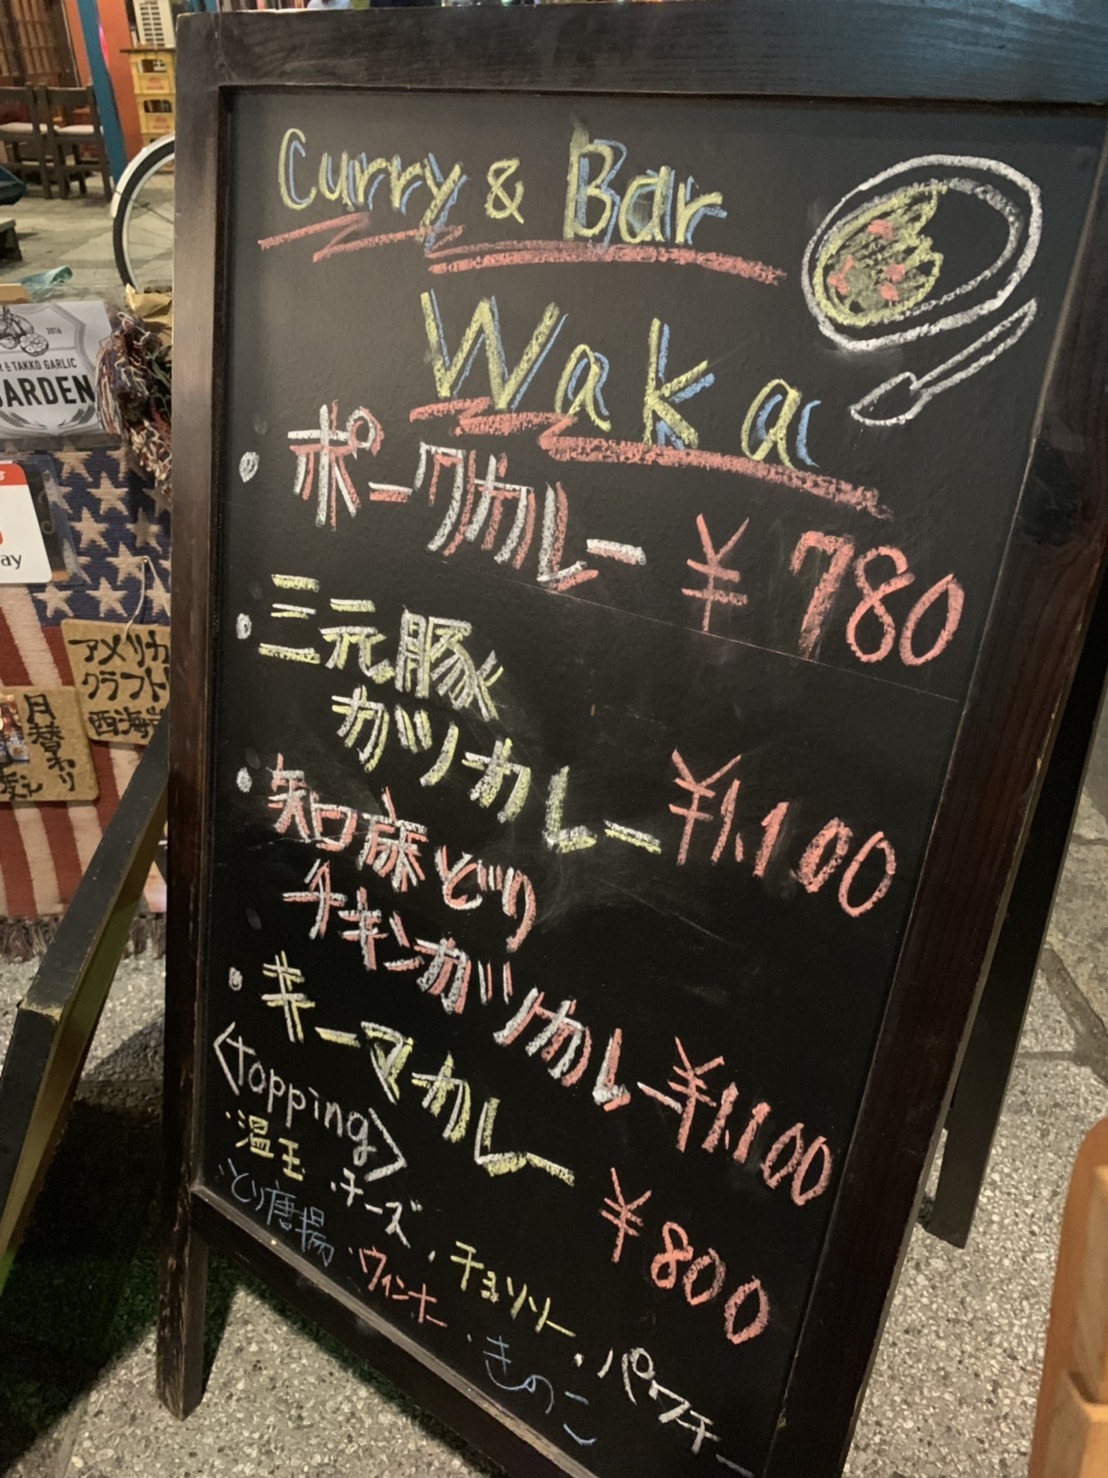 Curry & Bar
Waka
・ポークカレー ¥780
・三元豚
カツカレー ¥1,100
・知床どり
チキンカツカレー ¥1,100
・キーマカレー ¥800
<topping>
・温玉 ・チーズ ・チョリソー ・パクチー
・とり唐揚 ・ウィンナー ・きのこ
2016
& TAKKO GARLIC
GARDEN
ay
アメリカ
クラフト
西海岸
月替わり